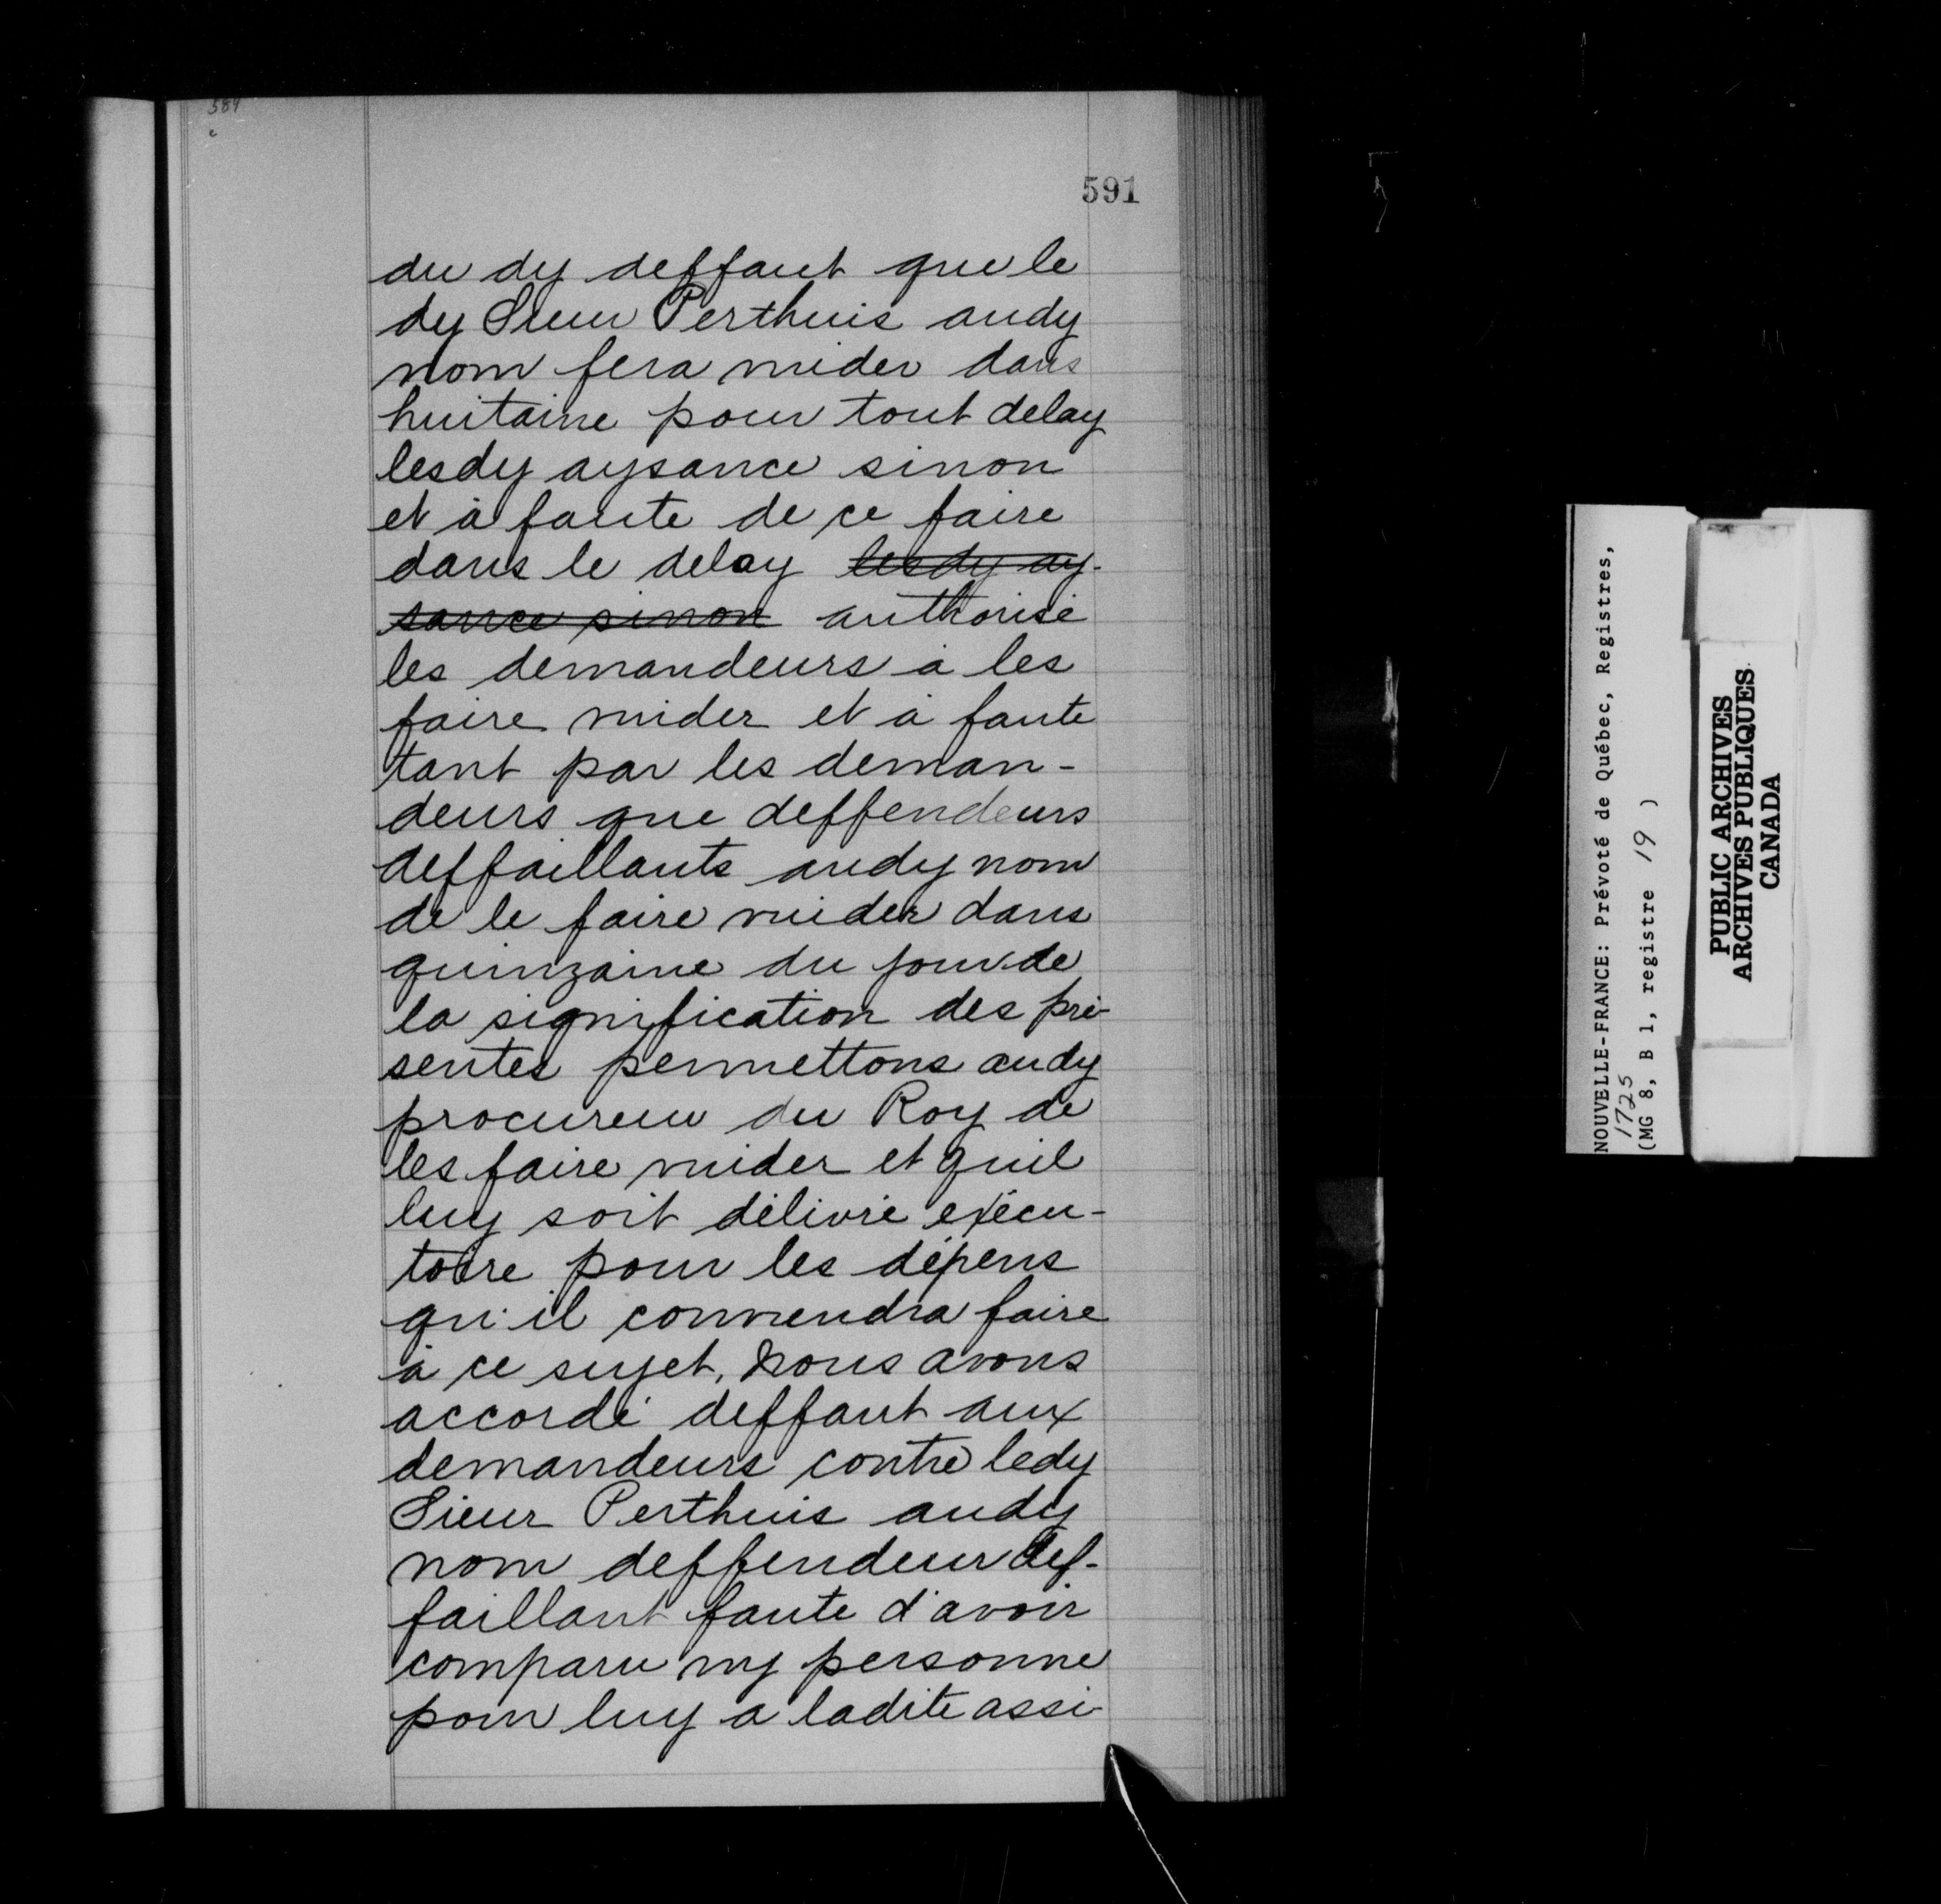 589
591
du dy deffaut que le
dy Sieur Perthuis audy
nom fera vuider dans
huitaine pour tout delay
lesdy aysance sinon
et à faute de ce faire
dans le delay lesdy ay-
sance sinon authorisé
les demandeurs à les
faire vuider et à faute
tant par les deman-
deurs que deffendeurs
deffaillants audy nom
de le faire vuider dans
quinzaine du jour de
la signification des pré-
sentes permettons audy
procureur du Roy de
les faire vuider et quil
luy soit délivré exécu-
toire pour les dépens
qu'il conviendra faire
à ce sujet, nous avons
accordé deffaut aux
demandeurs contre ledy
Sieur Perthuis audy
nom deffendeur def-
faillant faute d'avoir
comparu ny personne
pour luy a ladite assi-
NOUVELLE-FRANCE: Prévoté de Québec, Registres,
1725
(MG 8, B 1, registre 19 )
PUBLIC ARCHIVES
ARCHIVES PUBLIQUES
CANADA